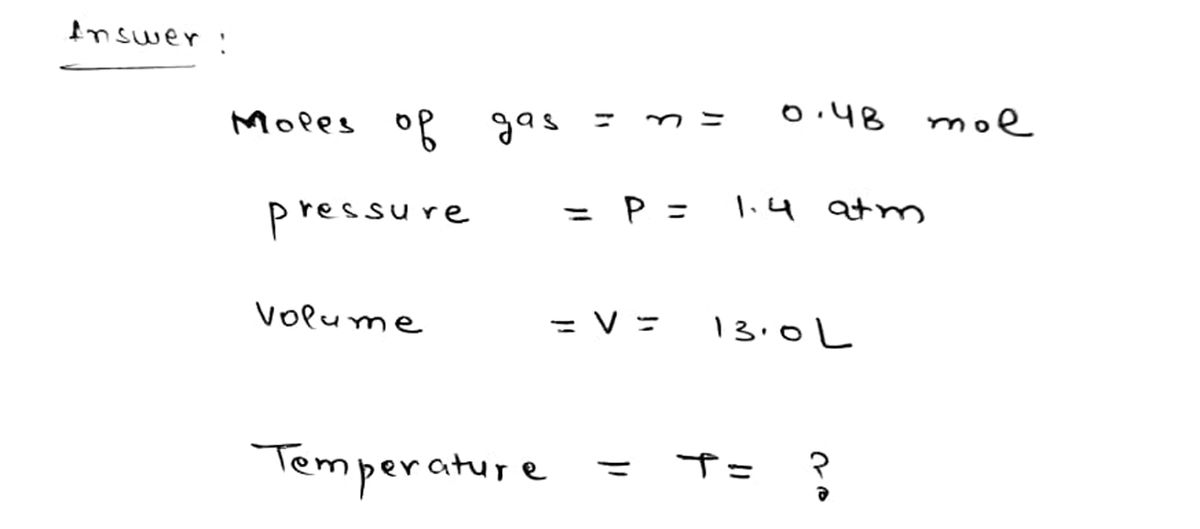 Answer :
Moles of gas = n = 0.48 mol
pressure = P = 1.4 atm
Volume = V = 13.0 L
Temperature = T = ?